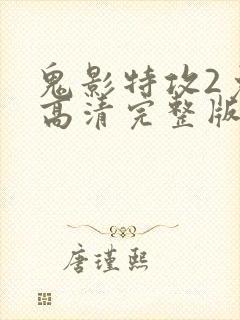 鬼影特攻2
高清完整版
唐瑾熙